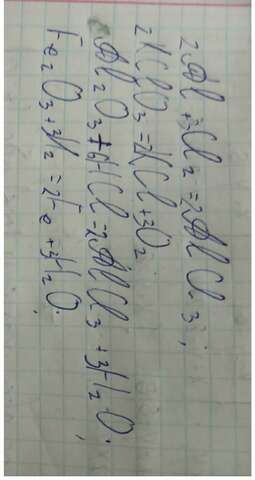 2Al+3Cl₂=2AlCl₃;
2KClO₃=2KCl+3O₂
Al₂O₃+6HCl=2AlCl₃+3H₂O;
Fe₂O₃+3H₂=2Fe+3H₂O.